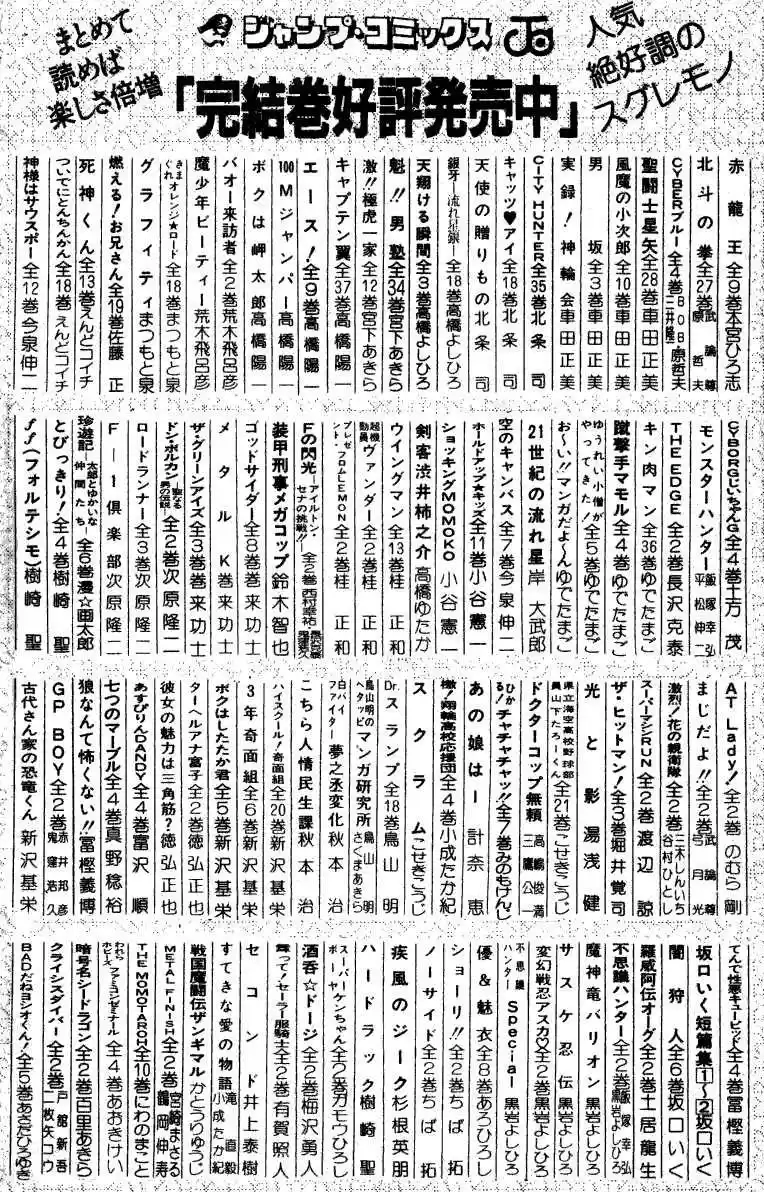 まとめて
読めば
楽しさ倍増
ジャンプ・コミックス
人気
絶好調の
スグレモノ
「完結巻好評発売中」
赤龍王 全9巻 本宮ひろ志
北斗の拳 全27巻 武論尊 原哲夫
CYBERブルー 全4巻 BOB 三井隆一 原哲夫
聖闘士星矢 全28巻 車田正美
風魔の小次郎 全10巻 車田正美
男坂 全3巻 車田正美
実録!神輪会 車田正美
CITY HUNTER 全35巻 北条司
キャッツ♥アイ 全18巻 北条司
天使の贈りもの 北条司
銀牙―流れ星 銀― 全18巻 高橋よしひろ
天翔ける瞬間 全3巻 高橋よしひろ
魁!!男塾 全34巻 宮下あきら
激!!極虎一家 全12巻 宮下あきら
キャプテン翼 全37巻 高橋陽一
エース! 全9巻 高橋陽一
100Mジャンパー 高橋陽一
ボクは岬太郎 高橋陽一
バオー来訪者 全2巻 荒木飛呂彦
魔少年ビーティー 荒木飛呂彦
きまぐれオレンジ★ロード 全18巻 まつもと泉
グラフィティ まつもと泉
燃える!お兄さん 全19巻 佐藤正
死神くん 全13巻 えんどコイチ
ついでにとんちんかん 全18巻 えんどコイチ
神様はサウスポー 全12巻 今泉伸二
CYBORGじいちゃんG 全4巻 土方茂
モンスターハンター 飯塚幸弘 平松伸二
THE EDGE 全2巻 長沢克泰
キン肉マン 全36巻 ゆでたまご
蹴撃手マモル 全4巻 ゆでたまご
ゆうれい小僧がやってきた! 全5巻 ゆでたまご
お〜い!!マンガだよ〜ん ゆでたまご
21世紀の流れ星 岸大武郎
空のキャンバス 全7巻 今泉伸二
ホールドアップ★キッズ 全11巻 小谷憲一
ショッキングMOMOKO 小谷憲一
剣客渋井柿之介 高橋ゆたか
ウイングマン 全13巻 桂正和
超機動員ヴァンダー 全2巻 桂正和
プレゼント・フロムLEMON 全2巻 桂正和
Fの閃光―アイルトン・セナの挑戦!!― 全2巻 西村幸祐
装甲刑事メガコップ 鈴木智也
ゴッドサイダー 全8巻 巻来功士
メタルK 巻来功士
ザ・グリーンアイズ 全3巻 巻来功士
ドン・ボルカン―聖なる男の伝説― 全2巻 次原隆二
ロードランナー 全3巻 次原隆二
F―1倶楽部 次原隆二
珍遊記―太郎とゆかいな仲間たち― 全6巻 漫☆画太郎
とびっきり! 全4巻 樹崎聖
ff(フォルテシモ) 樹崎聖
AT Lady! 全2巻 のむら剛
まじだよ!! 全2巻 武論尊 弓月光
激烈!花の親衛隊 全2巻 三木しんいち 谷村ひとし
スーパーマシンRUN 全2巻 渡辺諒
ザ・ヒットマン! 全3巻 堀井覚司
光と影 湯浅健
県立海空高校野球部員山下たろーくん 全21巻 こせきこうじ
ドクターコップ無頼 高嶋俊満 三鷹公一
ひかる!チャチャチャッ!! 全7巻 みのもけんじ
あの娘は― 計奈恵
檄!翔輪高校応援団 全4巻 小成たか紀
スクラム こせきこうじ
Dr.スランプ 全18巻 鳥山明
鳥山明のヘタッピマンガ研究所 鳥山明 さくまあきら
白バイファイター夢之丞変化 秋本治
こちら人情民生課 秋本治
ハイスクール!奇面組 全20巻 新沢基栄
3年奇面組 全6巻 新沢基栄
ボクはしたたか君 全5巻 新沢基栄
ターヘルアナ富子 全2巻 徳弘正也
彼女の魅力は三角筋? 徳弘正也
あすぴりんDANDY 全4巻 富沢順
七つのマーブル 全4巻 真野稔裕
狼なんて怖くない!! 冨樫義博
GP BOY 全2巻 赤井邦彦 鬼窪浩久
古代さん家の恐竜くん 新沢基栄
てんで性悪キューピッド 全4巻 冨樫義博
坂口いく短篇集1〜2 坂口いく
闇狩人 全6巻 坂口いく
羅威阿伝オーグ 全2巻 土居龍生
不思議ハンター 全2巻 飯塚幸弘 黒岩よしひろ
魔神竜バリオン 黒岩よしひろ
サスケ忍伝 黒岩よしひろ
変幻戦忍アスカ♡ 全2巻 黒岩よしひろ
不思議ハンターSpecial 黒岩よしひろ
優&魅衣 全8巻 あろひろし
ショーリ!! 全2巻 ちば拓
ノーサイド 全2巻 ちば拓
疾風のジーク 杉根英朋
ハードラック 樹崎聖
スーパーボーヤケンちゃん 全2巻 ガモウひろし
酒呑☆ドージ 全2巻 梅沢勇人
舞って!セーラー服騎士 全2巻 有賀照人
セコンド 井上泰樹
すてきな愛の物語 滝直毅 小成たか紀
戦国魔闘伝ザンギマル かとうりゅうじ
METAL FINISH 全2巻 宮崎まさる 鶴岡伸寿
THE MOMOTAROH 全10巻 にわのまこと
われらホビーズ ファミコンゼミナール 全4巻 あおきけい
暗号名シードラゴン 全2巻 百里あきら
クライシスダイバー 全2巻 戸舘新吾 二枚矢コウ
BADだねヨシオくん! 全5巻 あさだひろゆき